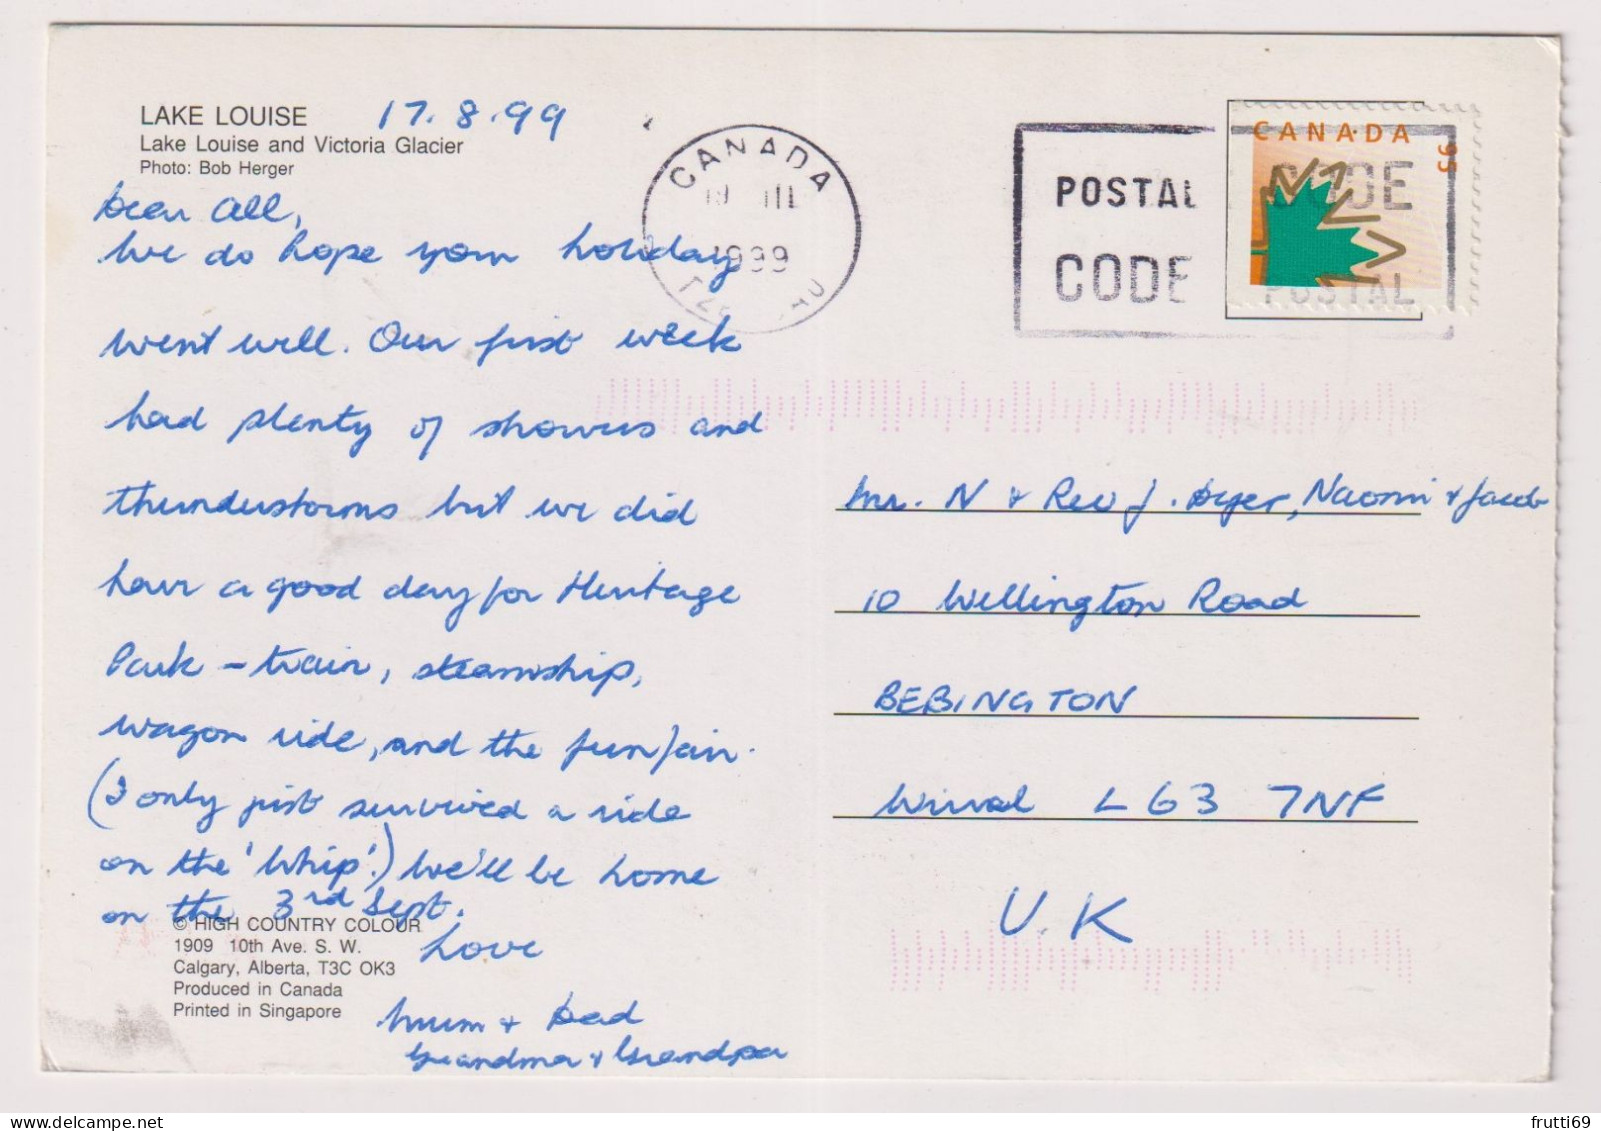 LAKE LOUISE 17.8.99
Lake Louise and Victoria Glacier
Photo: Bob Herger
Dear All,
We do hope your holiday
went well. Our first week
had plenty of showers and
thunderstorms but we did
have a good day for Heritage
Park - train, steamship,
wagon ride, and the funfair.
(I only just survived a ride
on the 'Whip'.) We'll be home
on the 3rd Sept.
Love
Mum + Dad
Grandma + Grandpa
© HIGH COUNTRY COLOUR
1909 10th Ave. S. W.
Calgary, Alberta, T3C OK3
Produced in Canada
Printed in Singapore
CANADA
1999
POSTAL
CODE
CANADA
CODE
POSTAL
Mr. N + Rev J. Dyer, Naomi + Jacob
10 Wellington Road
BEBINGTON
Wirral L63 7NF
U.K
frutti69